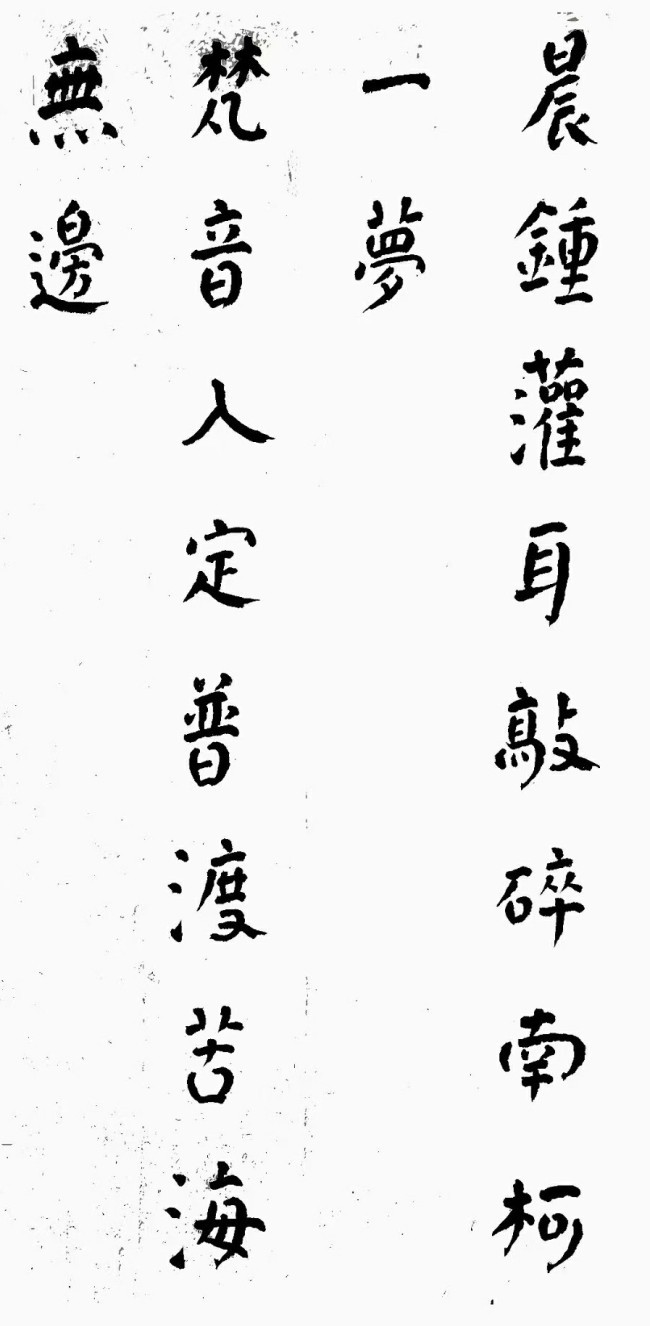 晨鍾灌耳敲碎南柯
一夢
梵音入定普渡苦海
無邊